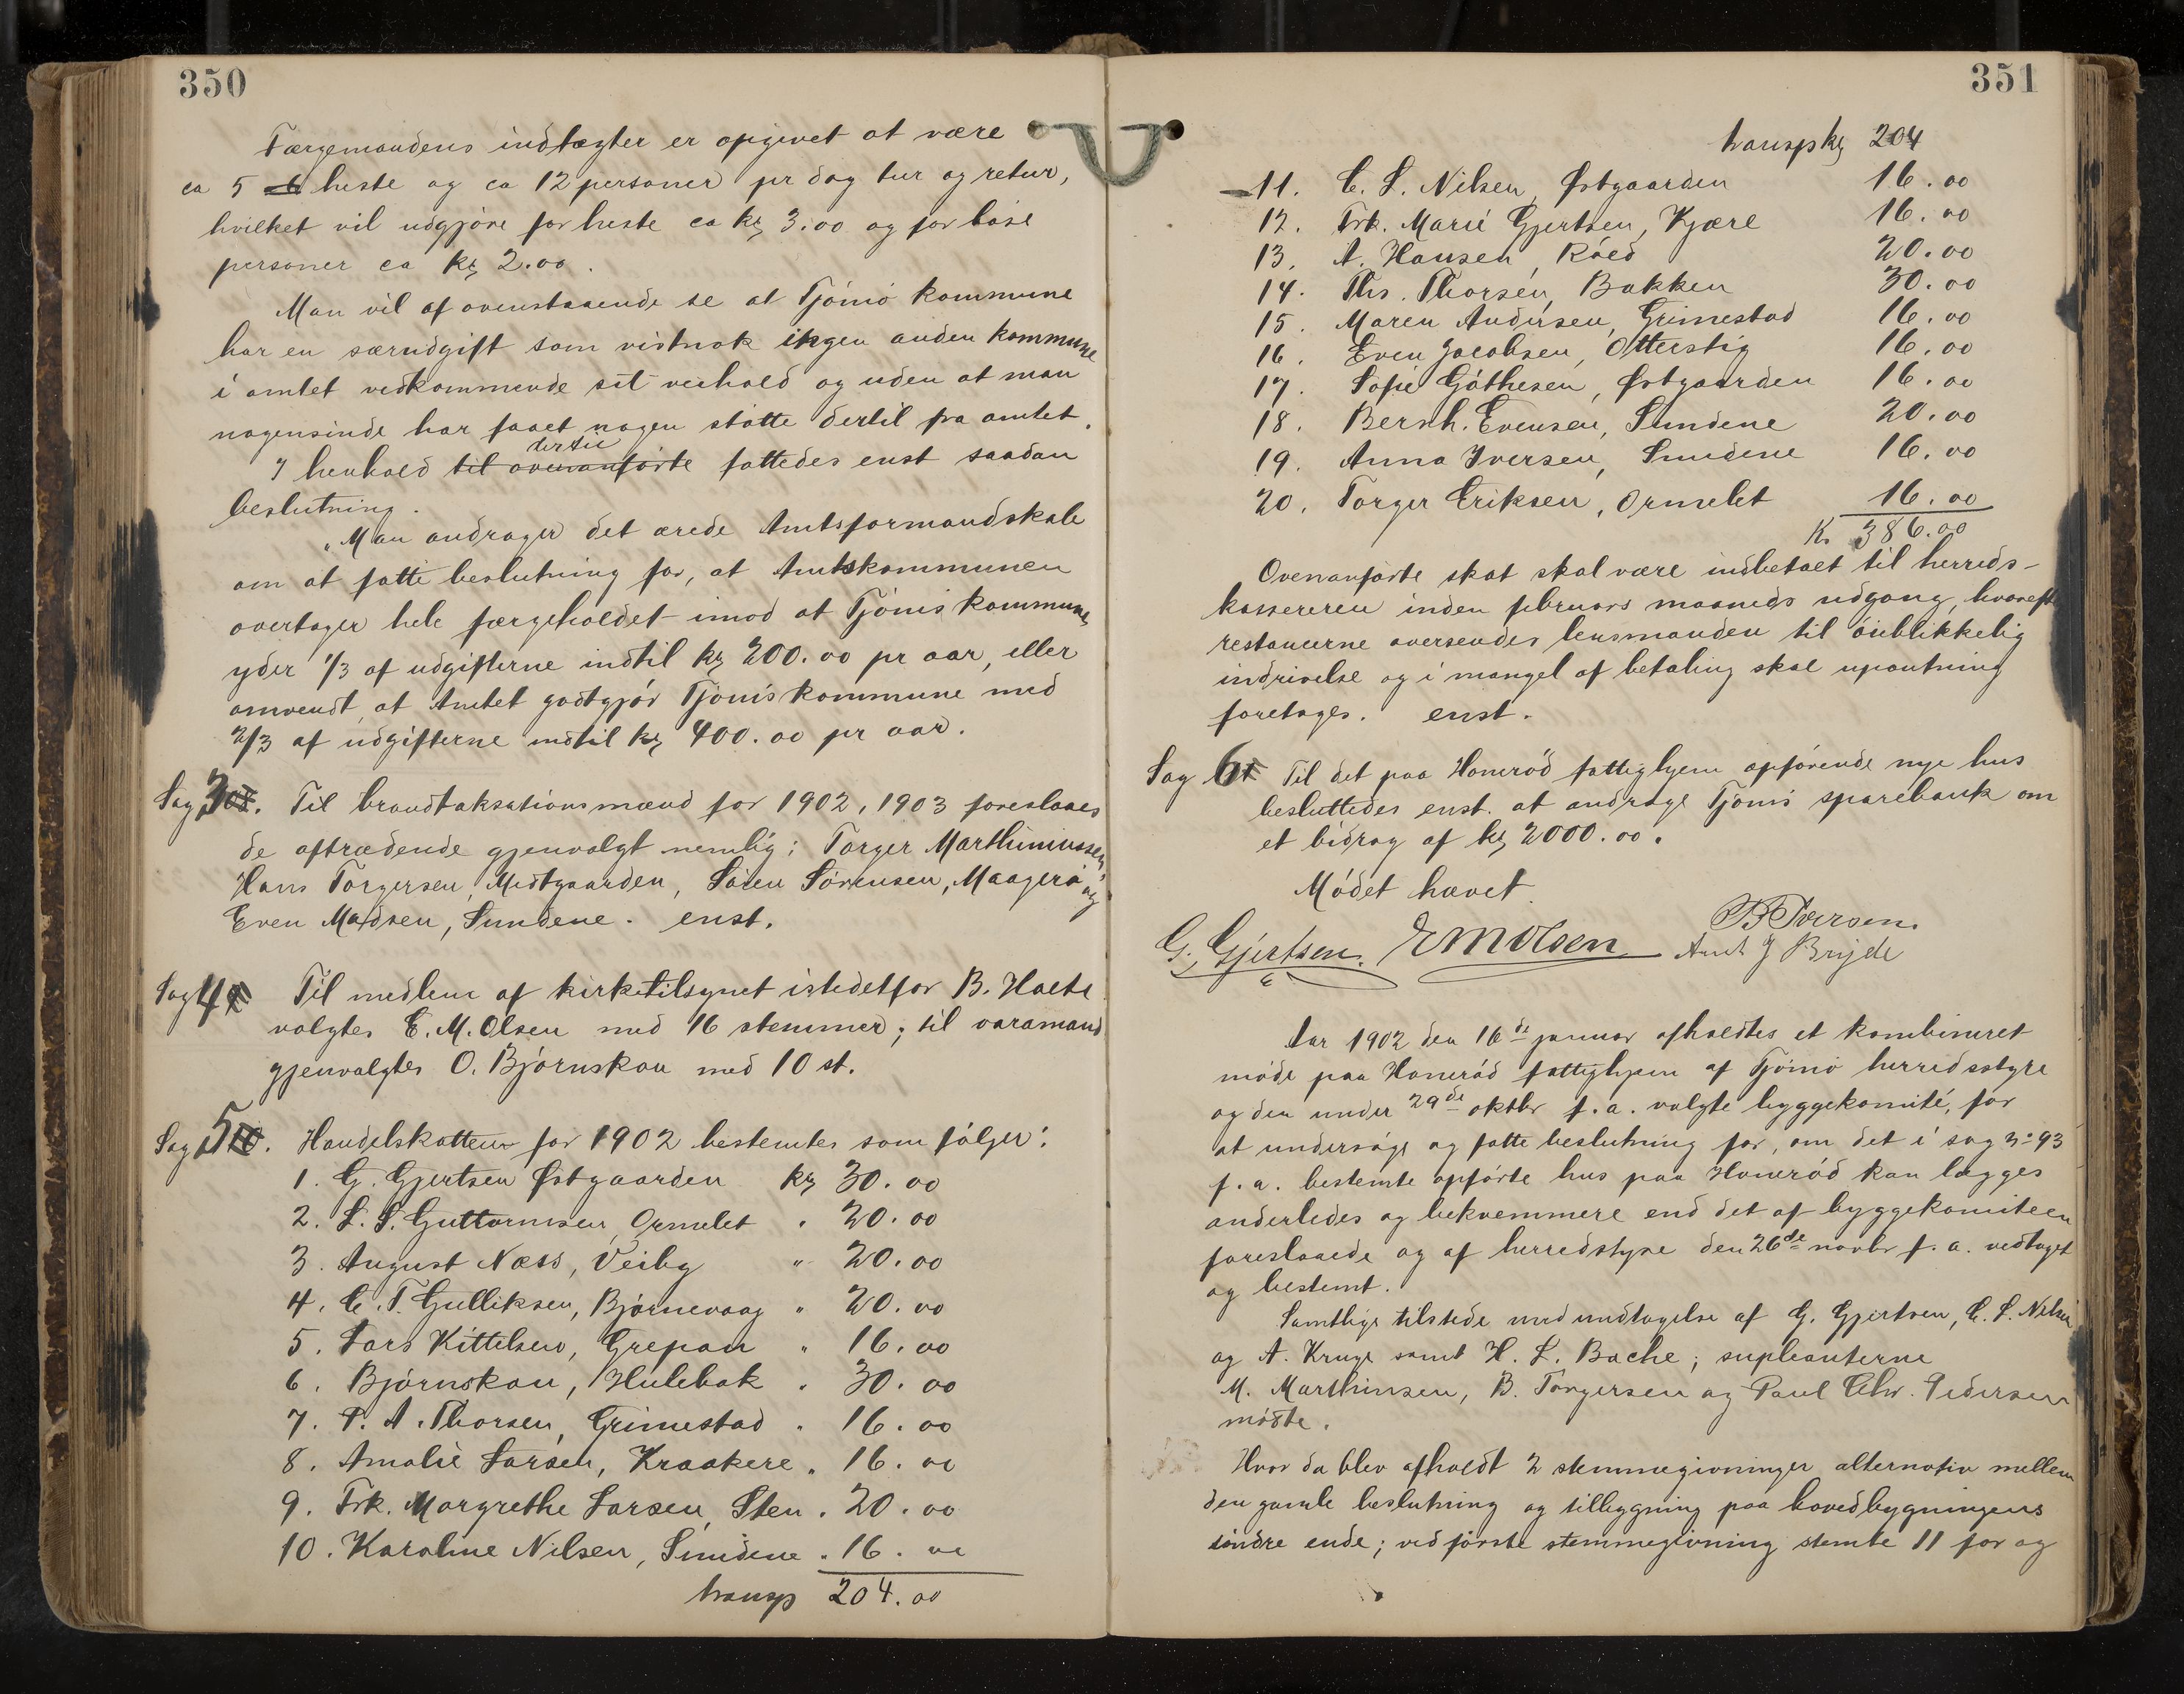 350
Færgemandens indtægter er opgivet at være
ca 5 heste og ca 12 personer pr dag tur og retur,
hvilket vil udgjøre for heste ca kr 3.00 og for løse
personer ca kr 2.00.
Man vil af ovenstaaende se at Tjømø kommune
har en særudgift som vistnok ingen anden kommune
i amtet vedkommende sit veihold og uden at man
nogensinde har faaet nogen støtte dertil fra amtet.
dertil
I henhold til ovenanførte fattedes enst saadan
beslutning.
"Man andrager det ærede Amtsformandskab
om at fatte beslutning for, at Amtskommunen
overtager hele færgeholdet imod at Tjømø kommune
yder 1/3 af udgifterne indtil kr 200.00 pr aar, eller
omvendt, at Amtet godtgjør Tjømø kommune med
2/3 af udgifterne indtil kr 400.00 pr aar.
Sag 3. Til brandtaksationsmænd for 1902, 1903 foreslaaes
de aftrædende gjenvalgt nemlig: Torger Marthiniussen,
Hans Torgersen, Midtgaarden, Søren Sørensen, Maagerø og
Even Madsen, Sundene. enst.
Sag 4 Til medlem af kirketilsynet istedetfor B. Holte
valgtes E. M. Olsen med 16 stemmer; til varamand
gjenvalgtes O. Bjørnskau med 10 st.
Sag 5. Handelskatten for 1902 bestemtes som følger:
1. G. Gjertsen Østgaarden kr 30.00
2. L. S. Guttormsen, Ormelet " 20.00
3. August Næss, Veiby " 20.00
4. C. T. Gulliksen, Bjørnevaag " 20.00
5. Lars Kittelsen, Grepan " 16.00
6. Bjørnskau, Hulebak " 30.00
7. P. A. Thorsen, Grimestad " 16.00
8. Amalie Larsen, Kraakere " 16.00
9. Frk. Margrethe Larsen, Sten " 20.00
10. Karoline Nilsen, Sundene " 16.00
transp 204.00
351
transp kr 204
11. C. L. Nilsen, Østgaarden 16.00
12. Frk. Marie Gjertsen, Kjære 16.00
13. A. Hansen, Røed 20.00
14. Ths. Thorsen, Bakken 30.00
15. Maren Andersen, Grimestad 16.00
16. Even Jacobsen, Otterstig 16.00
17. Sofie Gøthesen, Østgaarden 16.00
18. Bernh. Evensen, Sundene 20.00
19. Anna Iversen, Sundene 16.00
20. Torger Eriksen, Ormelet 16.00
Kr 386.00
Ovenanførte skat skal være indbetalt til herreds-
kassereren inden februars maaneds udgang, hvorefter
restancerne oversendes lensmanden til øieblikkelig
indrivelse og i mangel af betaling skal udpantning
foretages. enst.
Sag 6 Til det paa Honerød fattighjem opførende nye hus
besluttedes enst. at andrage Tjømø sparebank om
et bidrag af kr 2000.00.
Mødet hævet.
B Iversen.
G. Gjertsen. E M Olsen Amt J Bryde
Aar 1902 den 16de januar afholdtes et kombineret
møde paa Honerød fattighjem af Tjømø herredsstyre
og den under 29de oktbr f.a. valgte byggekomité, for
at undersøge og fatte beslutning for, om det i sag no 93
f.a. bestemte opførte hus paa Honerød kan lægges
anderledes og bekvemmere end det af byggekomiteen
foreslaaede og af herredstyre den 26de novbr f.a. vedtaget
og bestemt.
Samtlige tilstede med undtagelse af G. Gjertsen, C. L. Nilsen
og A. Kruge samt H. L. Bache; supleanterne
M. Marthinsen, B. Torgersen og Paul Chr. Pedersen
mødte.
Hvor da blev afholdt 2 stemmegivninger alternativ mellem
den gamle beslutning og tilbygning paa hovedbygningens
søndre ende; ved første stemmegivning stemte 11 for og